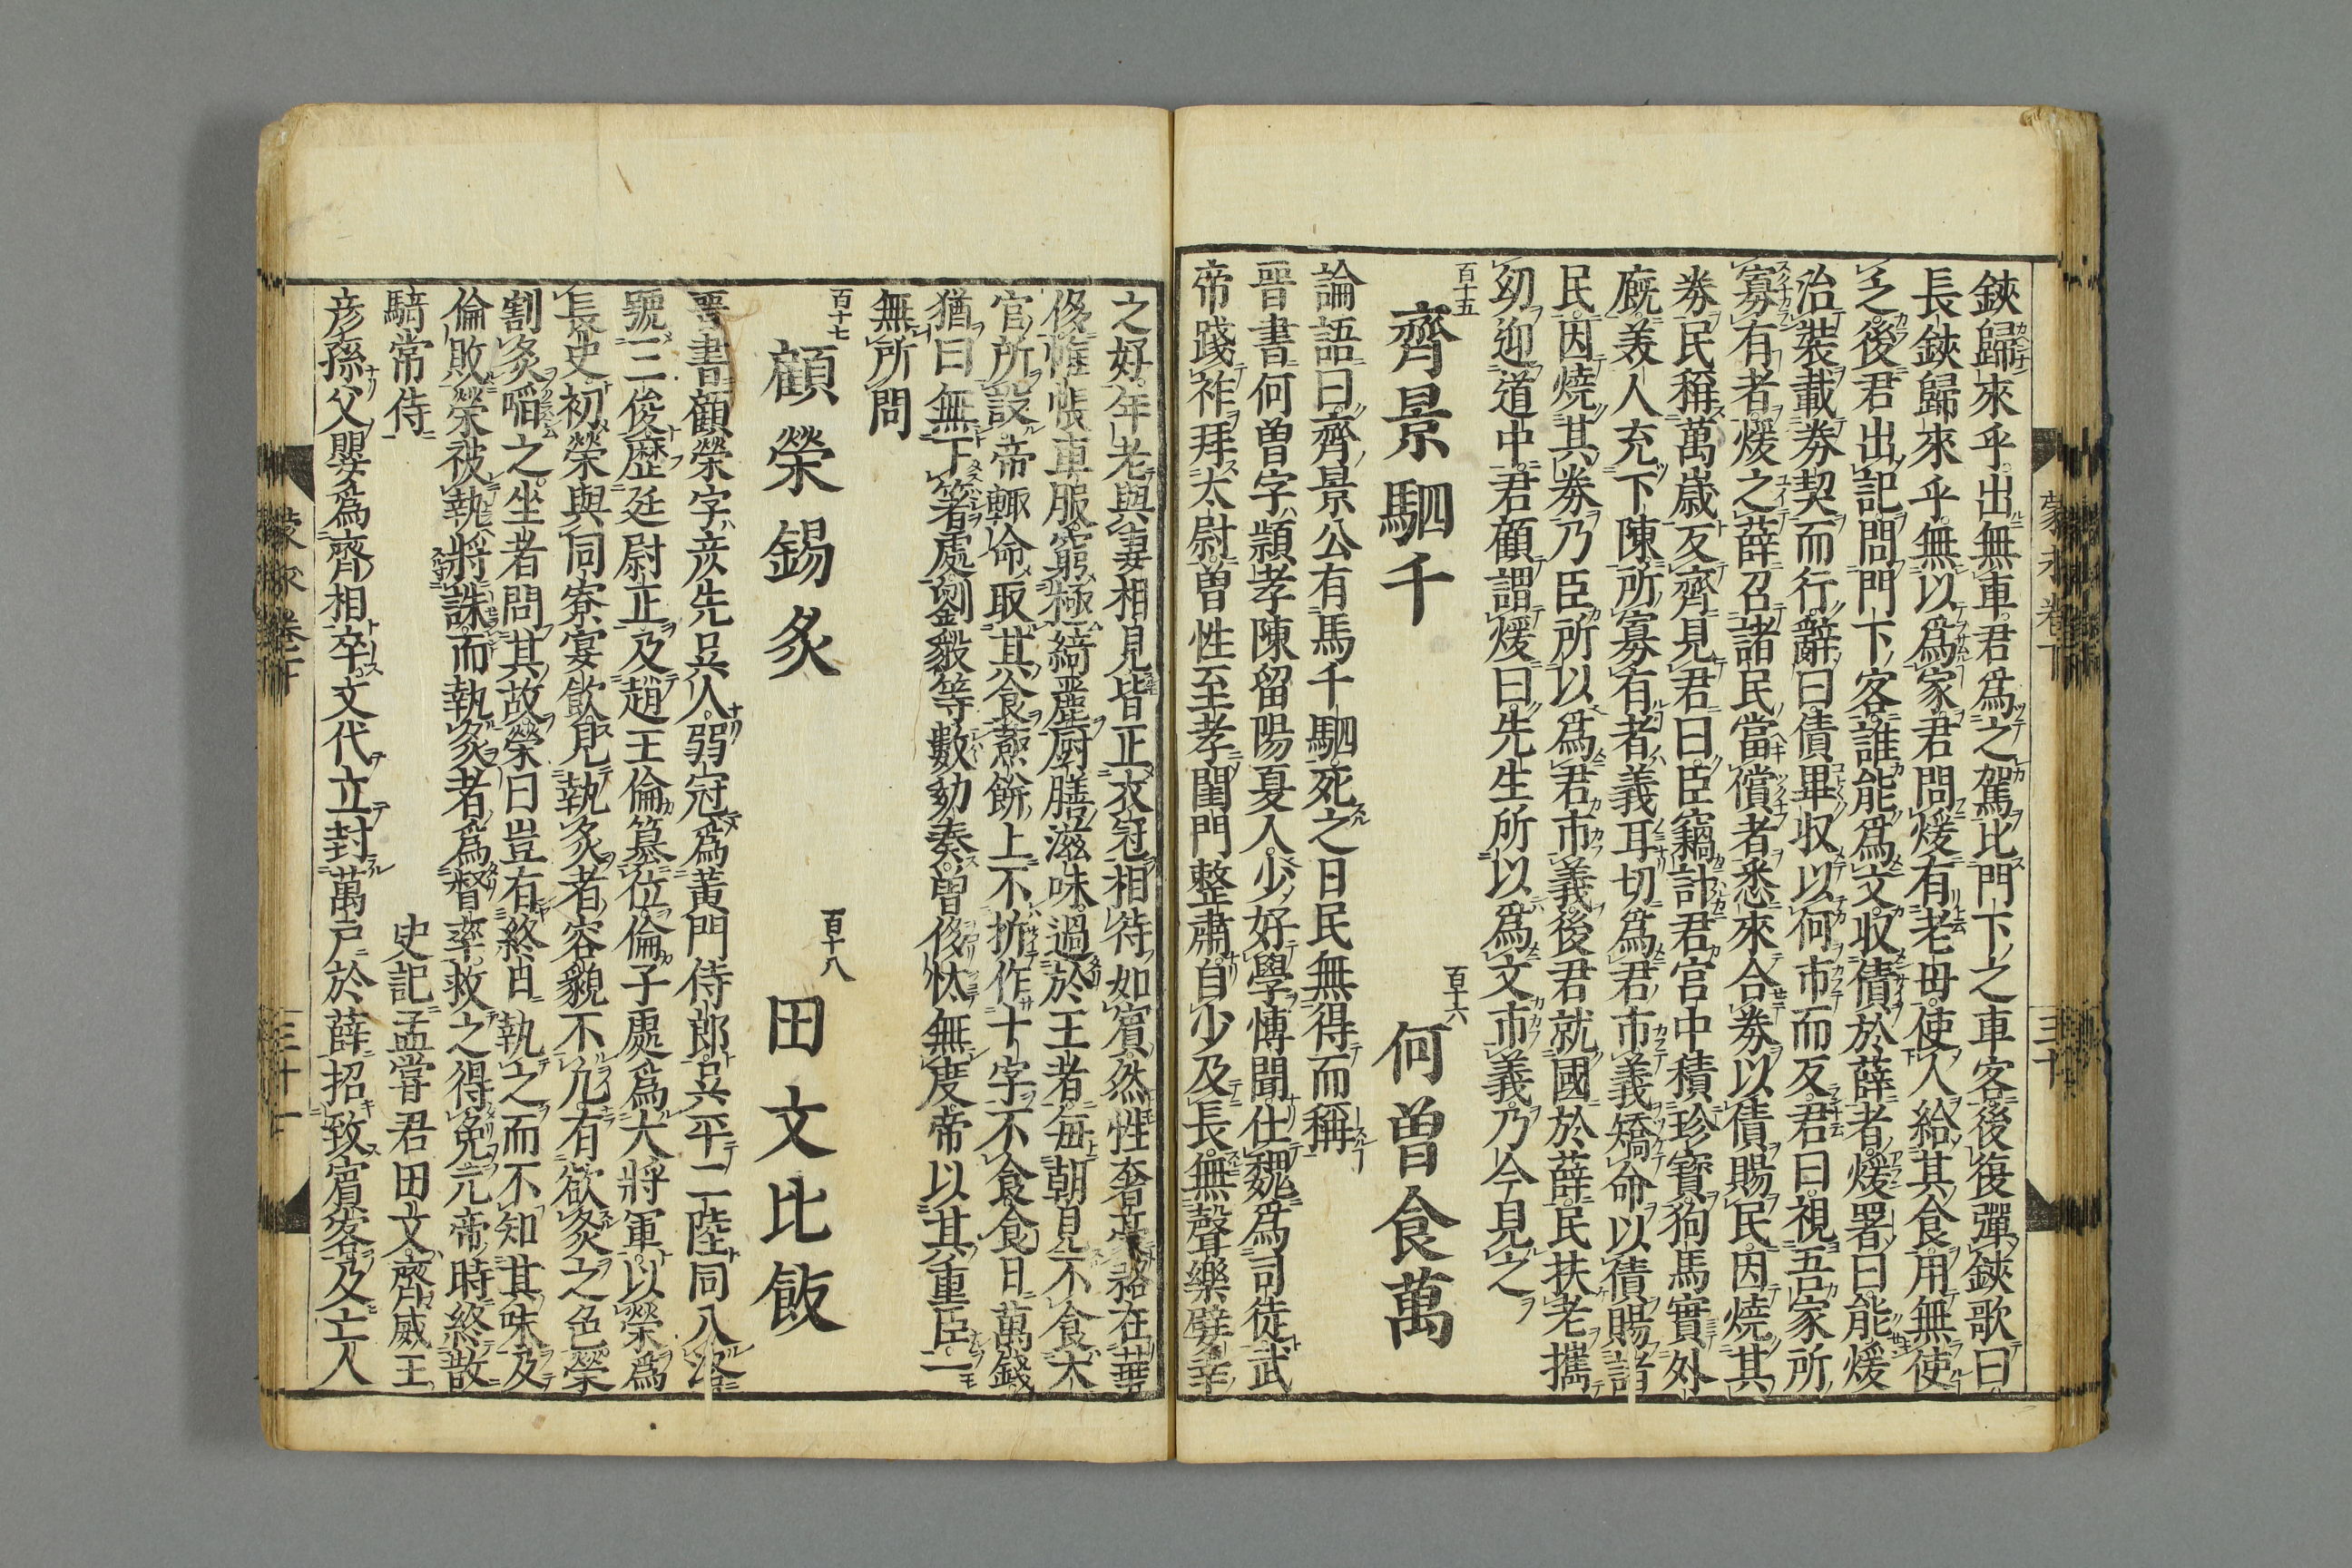 鋏歸來乎出無車君爲之駕比門下之車客後復彈鋏歌曰
長鋏歸來乎無以爲家君問煖有老母使人給其食用無使
乏後君出記問門下客誰能爲文収債於薛者煖署曰能煖
治裝載券契而行辭曰債畢収以何市而反君曰視吾家所
寡有者煖之薛召諸民當償者悉來合券以債賜民因燒其
券民稱萬歲反齊見君曰臣竊計君宮中積珍寶狗馬實外
廐美人充下陳所寡有者義耳切爲君市義矯命以債賜諸
民因燒其券乃臣所以爲君市義後君就國於薛民扶老攜
幼迎道中君顧謂煖曰先生所以爲文市義乃今見之
百十五
齊景駟千
百十六
何曾食萬
論語曰齊景公有馬千駟死之日民無得而稱
晉書何曾字頴孝陳留陽夏人少好學博聞仕魏爲司徒武
帝踐祚拜太尉曾性至孝閨門整肅自少及長無聲樂嬖幸
之好年老與妻相見皆正衣冠相待如賓然性奢豪務在華
侈帷帳車服窮極綺麗厨膳滋味過於王者毎朝見不食太
官所設帝輙命取其食蒸餅上不拆作十字不食食日萬錢
猶曰無下箸處劉毅等數劾奏曾侈忲無度帝以其重臣一
無所問
百十七
顧榮錫炙
百十八
田文比飯
晉書顧榮字彦先呉人弱冠爲黃門侍郎呉平二陸同入洛
號三俊歴廷尉正及趙王倫簒位倫子虔爲大將軍以榮爲
長史初榮與同寮宴飮見執炙者容貌不凡有欲炙之色榮
割炙㗖之坐者問其故榮曰豈有終日執之而不知其味及
倫敗榮被執將誅而執炙者爲督率救之得免元帝時終散
騎常侍
史記孟甞君田文齊威王
彦孫父嬰爲齊相卒文代立封萬戸於薛招致賓客及亡人
蒙求卷下
三十
蒙求卷下
三十一